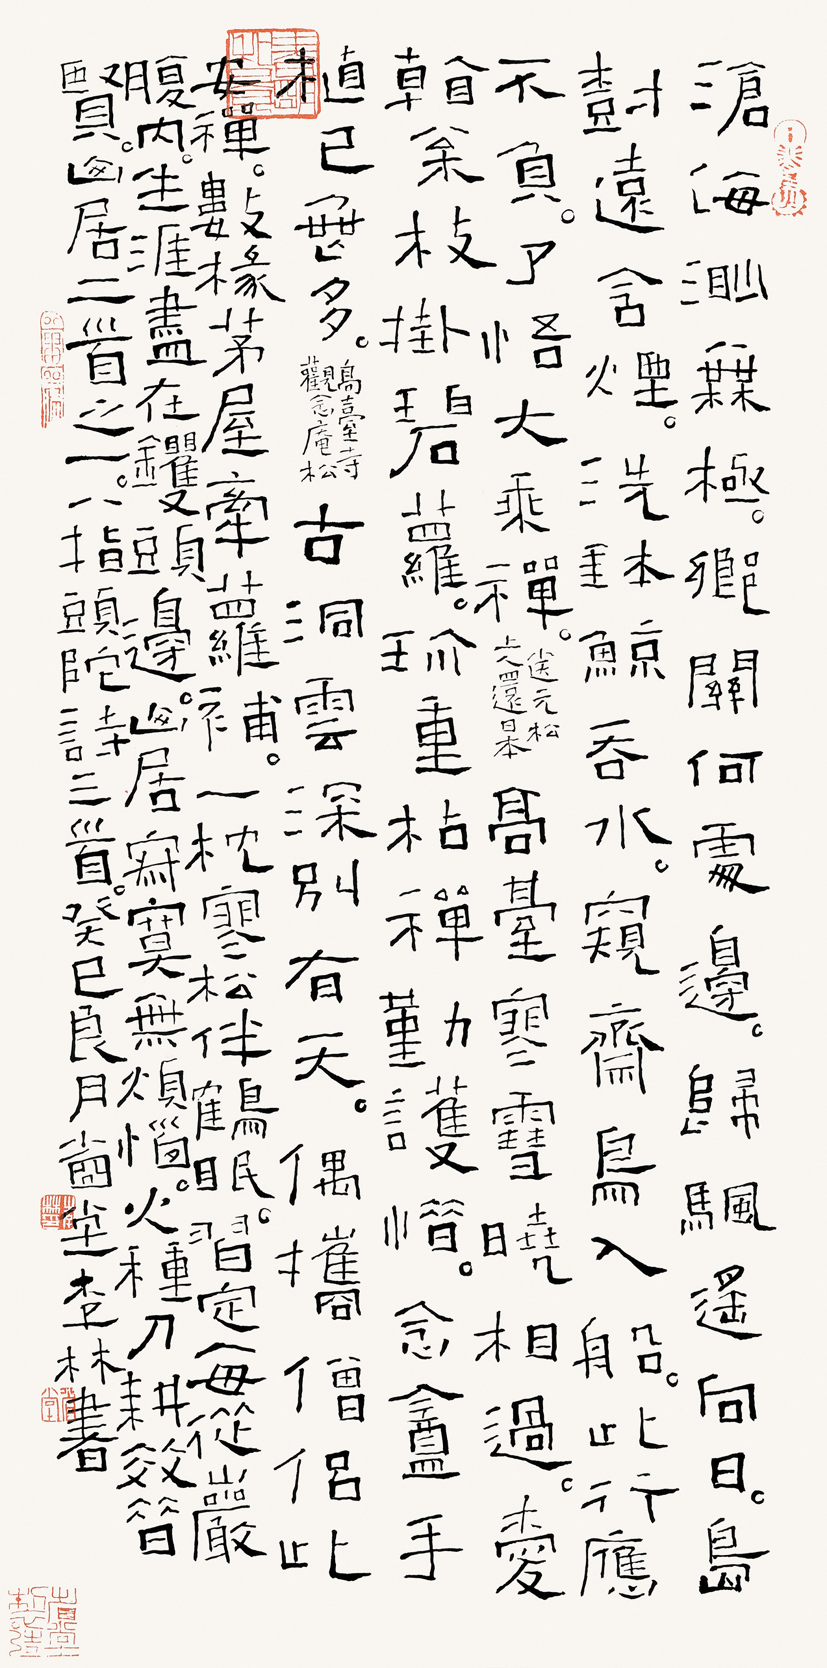 滄海渺無極。鄉關何處邊。歸颿遙向日。島
樹遠含煙。洗缽鯨吞水。窺齋鳥入船。此行應
不負。了悟大乘禪。
送元松
上人四還日本
高臺寒雪曉相過。愛
枝掛碧蘿。珍重枯禪勤護惜。念盦手
植已無多。
高臺寺
觀念庵松
古洞雲深別有天。偶攜僧侶此
安禪。數椽茅屋牽蘿補。一枕寒松伴鶴眠。習定每從嚴
腹內。生涯盡在钁頭邊。山居寂寞無煩惱。火種刀耕效昔
賢。山居二首之一。八指頭陀詩三首。癸巳良月堂李林書